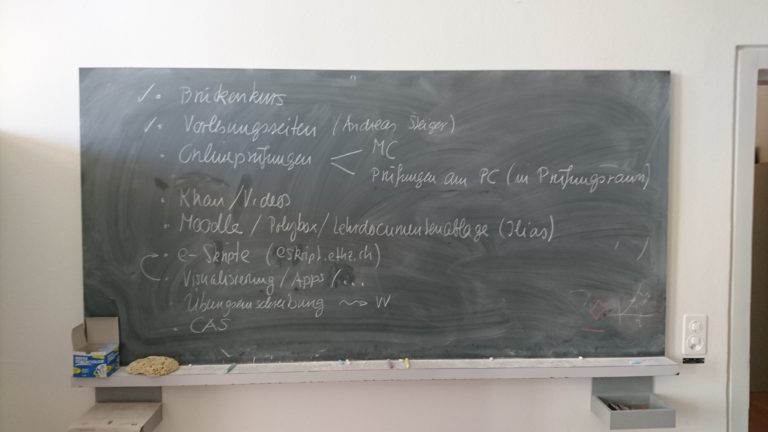 ✓ • Brückenkurs
✓ • Vorlesungsseiten (Andreas Steiger)
• Onlineprüfungen < MC
Prüfungen am PC (in Prüfungsraum)
• Khan/Videos
• Moodle / Polybox / Lehrdocumentenablage (Ilias)
• e-Skripte (eskript.ethz.ch)
• Visualisierung / Apps / ...
• Übungseinschreibung ~> W
• CAS